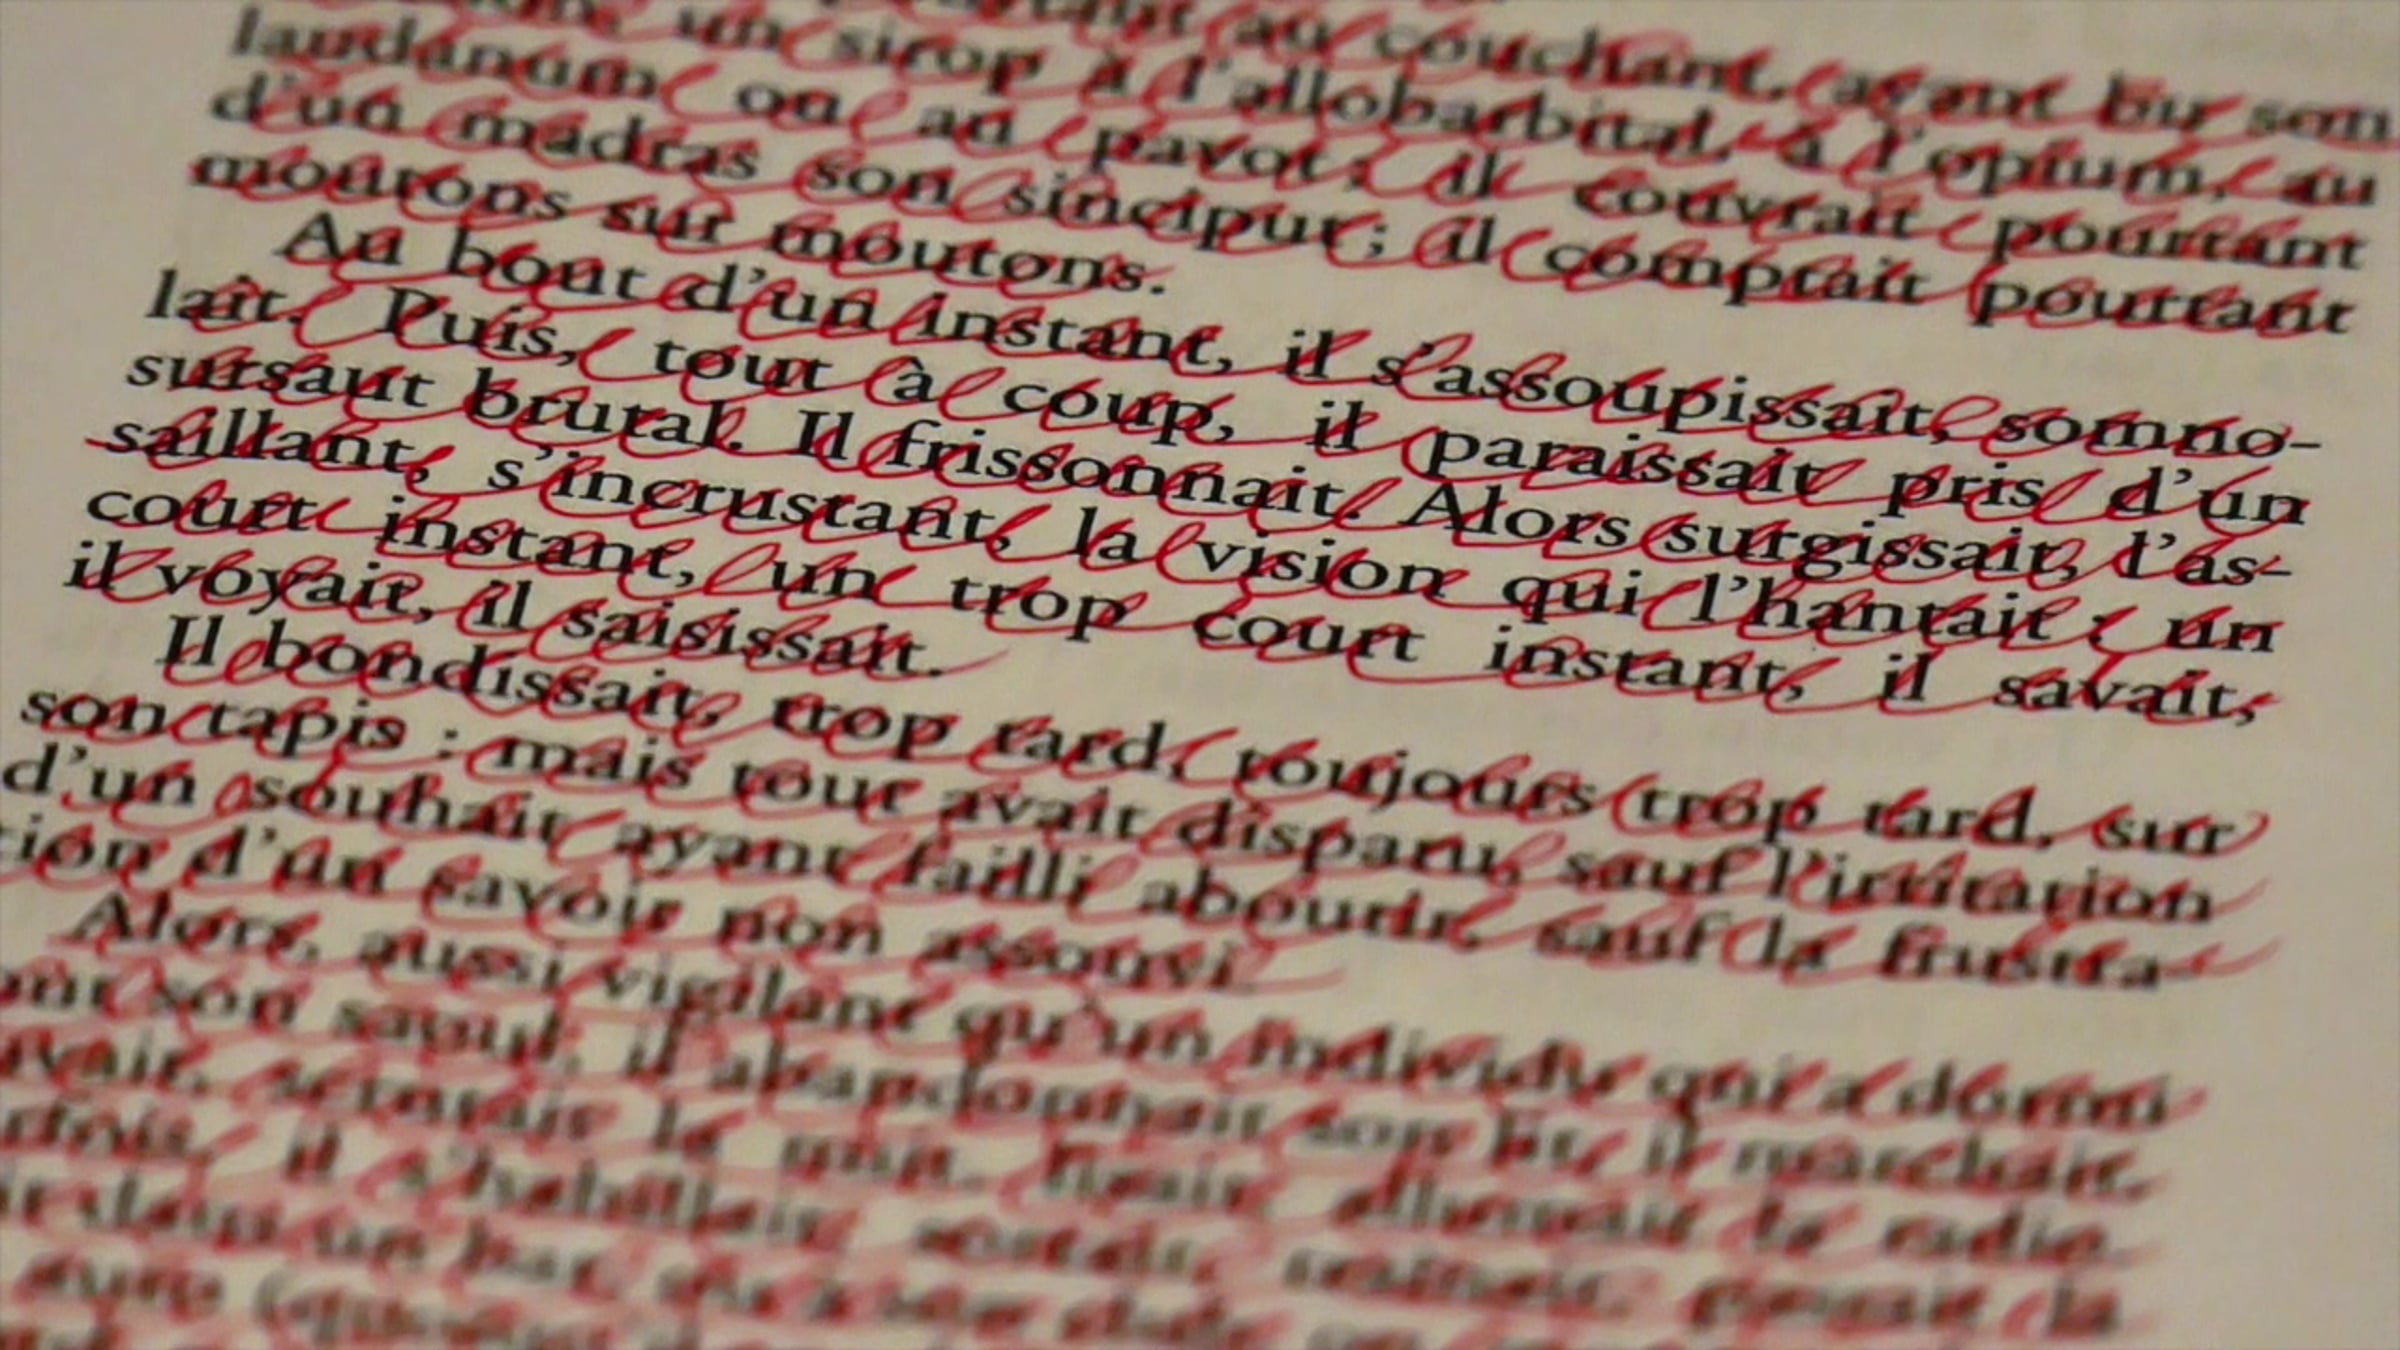 au couchant, ayant bu son
un sirop à l'allobarbital, à l'opium, au
laudanum ou au pavot; il couvrait pourtant
d'un madras son sinciput; il comptait pourtant
moutons sur moutons.
Au bout d'un instant, il s'assoupissait, somno-
lait. Puis, tout à coup, il paraissait pris d'un
sursaut brutal. Il frissonnait. Alors surgissait, l'as-
saillant, s'incrustant, la vision qui l'hantait : un
court instant, un trop court instant, il savait,
il voyait, il saisissait.
Il bondissait, trop tard, toujours trop tard, sur
son tapis : mais tout avait disparu, sauf l'irritation
d'un souhait ayant failli aboutir, sauf la frustra-
tion d'un savoir non assouvi.
Alors, aussi vigilant qu'un individu qui a dormi
son saoul, il abandonnait son lit, il marchait,
buvait, scrutait la nuit, lisait, allumait la radio.
Parfois, il s'habillait, sortait, traînait, passait la
dans un bar, ou à son club,
auto (